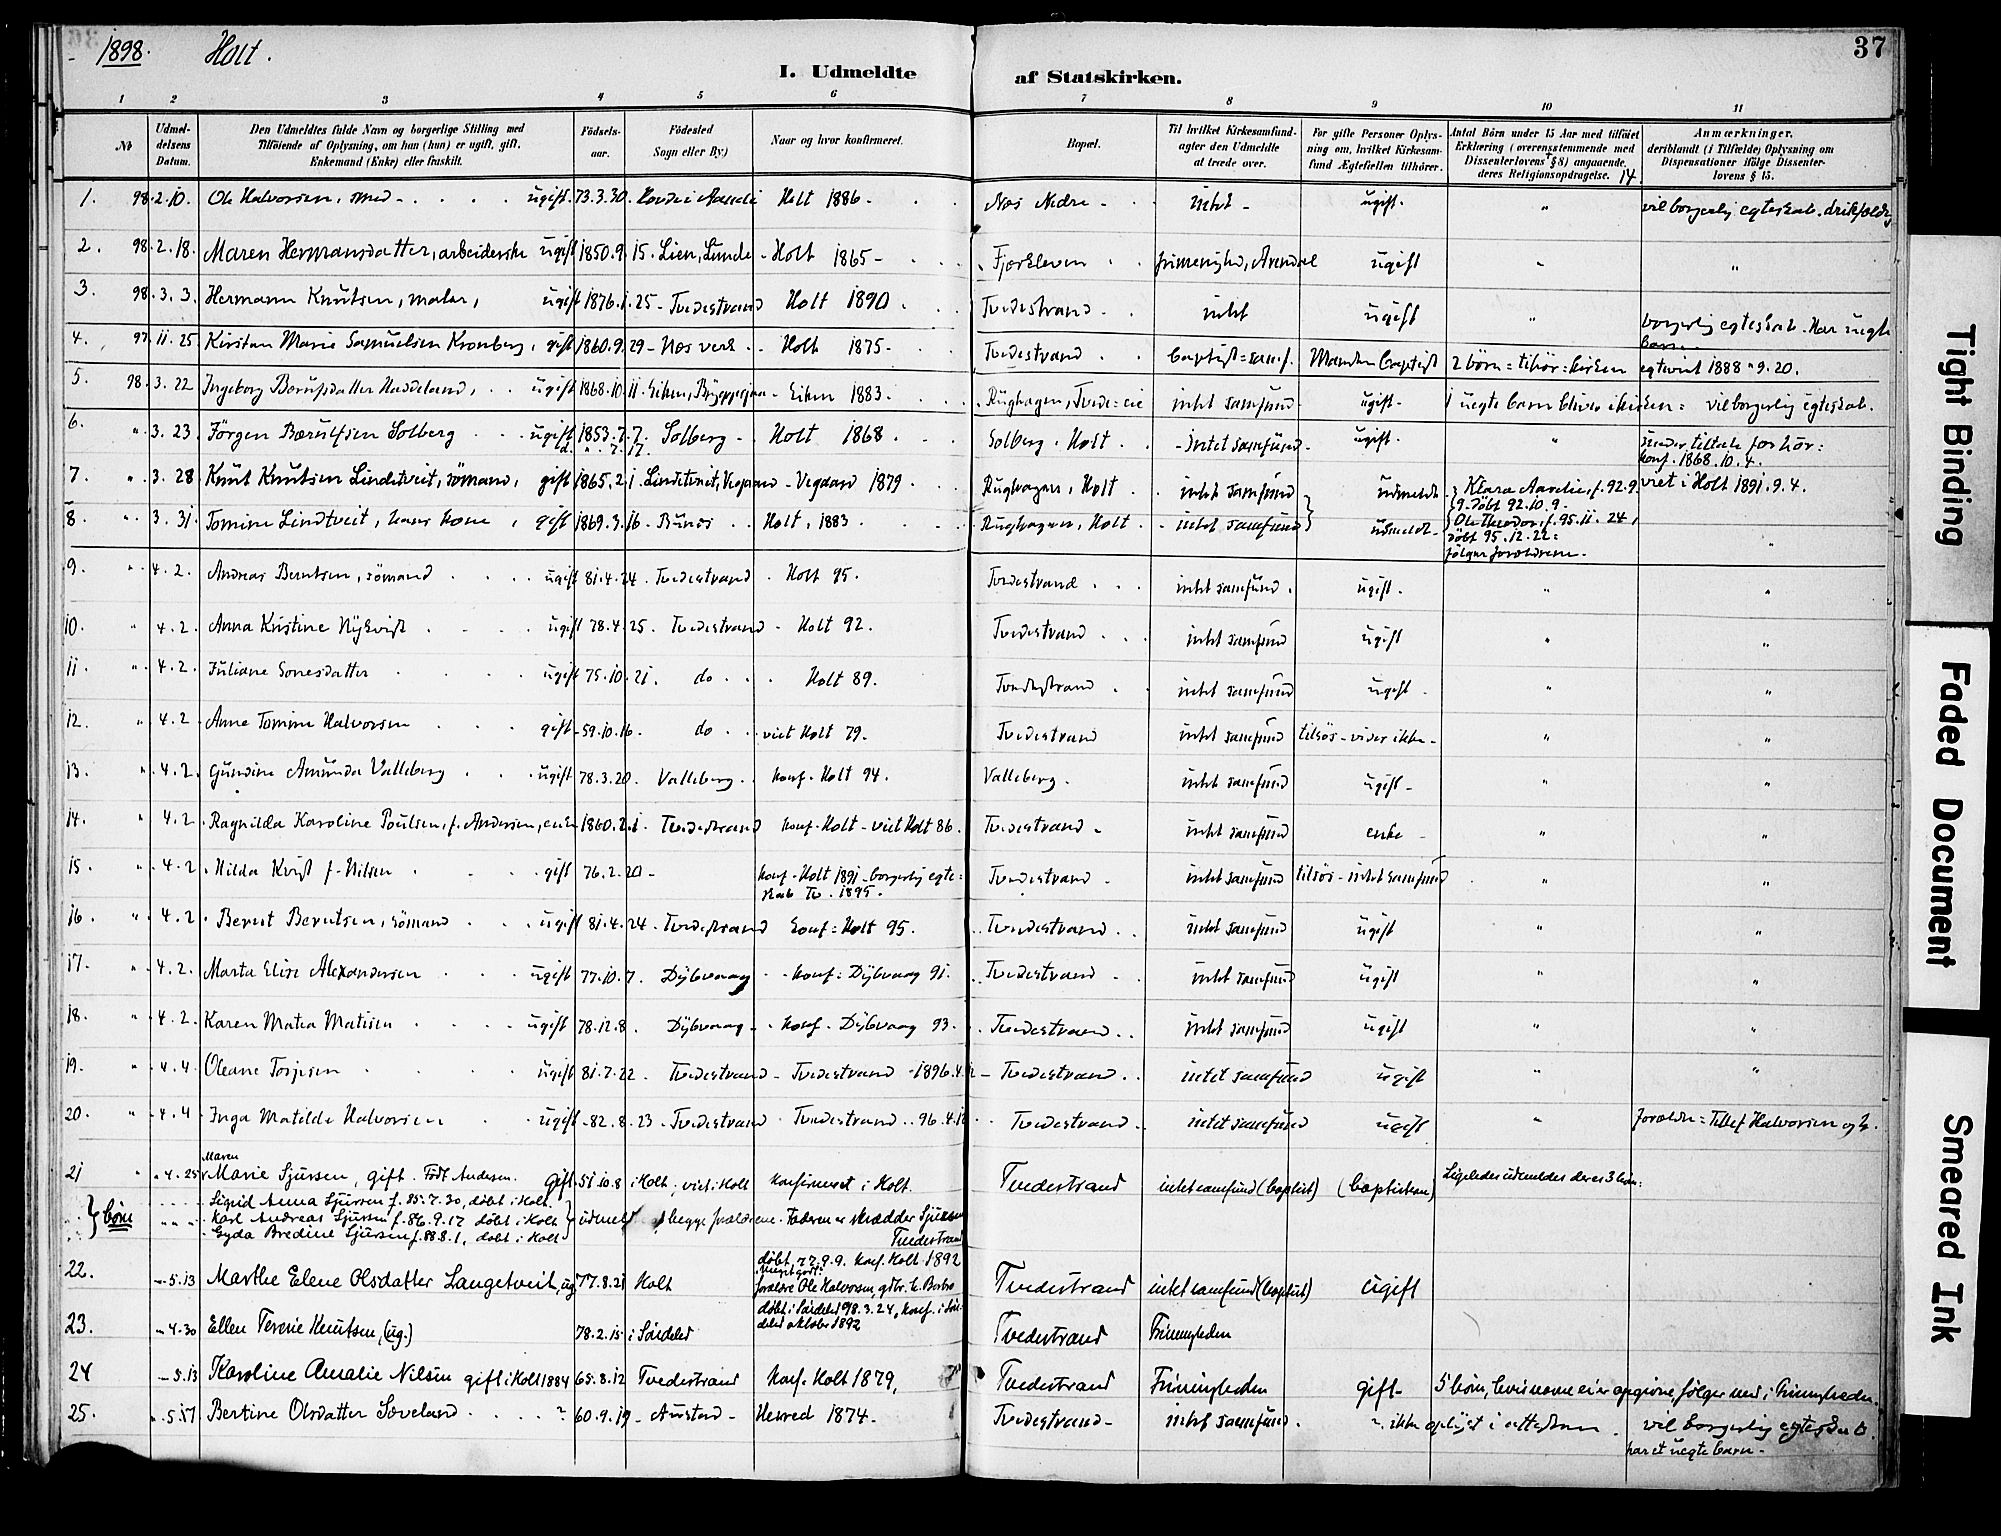 1898. Holt.
37
I. Udmeldte af Statskirken.
1 2 3 4 5 6 7 8 9 10 11
No
Udmeldelsens Datum.
Den Udmeldtes fulde Navn og borgerlige Stilling med Tilføiende af Oplysning, om han (hun) er ugift, gift, Enkemand (Enke) eller fraskilt.
Fødsels-aar.
Fødested Sogn eller By.)
Naar og hvor konfirmeret.
Bopæl.
Til hvilket Kirkesamfund agter den Udmeldte at træde over.
For gifte Personer Oplysning om, hvilket Kirkesamfund Ægtefællen tilhører.
Antal Børn under 15 Aar med tilføiet Erklæring (overensstemmende med Dissenterlovens § 8) angaaende deres Religionsopdragelse. 14
Anmærkninger, deriblandt (i Tilfælde) Oplysning om Dispensationer ifølge Dissenterlovens § 15.
1. 98. 2.10. Ole Halvorsen, smed - ugift. 73.3.30. Holt 1886 - Nes Nedre - intet - ugift. " vil borgerlig egteskab.
2. 98. 2.18. Maren Hermansdatter, arbeiderske ugift 1850.9.15. Lien, Lunde - Holt 1865 - frimenighed, Arendal ugift " "
3. 98. 3. 3. Hermann Knutsen, maler, ugift 1876.1.25 - Tvedestrand Holt 1890. Tvedestrand - intet ugift " borgerlig egteskab. Har uegte barn -
4. 97. 11. 25. Kirsten Marie Samuelsen Kronberg, gift 1860.9.29 - Nes verk - Holt 1875 - Tvedestrand baptist = samf. Manden baptist 2 børn = tilhør = kirken egteviet 1888 " 9. 20.
5. 98. 3. 22 Ingeborg Berulfsdatter Haddeland, ugift 1868.10.11. Eiken, - Eiken 1883. Rughagen, intet samfund - ugift - 1 uegte barn bliver i kirken = vil borgerlig egteskab.
6. " 3. 23. Jörgen Bærulfsen Solberg ugift 1853.7.7. Solberg - Holt 1868. Solberg. Holt - intet samfund - ugift. " under tiltale for hor: konf. 1868.10.4.
7. " 3. 28 Knut Knutsen Lindtveit, sömand, gift 1865.2.1 Lindtveit, Vegaard - Vegaard 1879. Rughagen, Holt. intet samfund udmeldt - Klara Aurelie, f. 92.9.9. döbt 92.10.9 - viet i Holt 1891.9.4.
8. " 3. 31. Tomine Lindtveit, hans kone, gift 1869.3.16 - Bunes - Holt, 1883. Rughagen, Holt. - intet samfund udmeldt - Ole Theodor, f. 95.11.24, döbt 95.12.22: følger forældrene. "
9. " 4.2. Andreas Berntsen, sömand ugift 81.4.24. Tvedestrand. Holt 95. Tvedestrand intet samfund. ugift. " "
10. " 4.2. Anna Kristine Nykvist ugift 78.4.25. Tvedestrand - Holt 92. Tvedestrand intet samfund ugift " "
11. " 4.2. Juliane Sonesdatter ugift 75.10.21. do Holt 89. Tvedestrand intet samfund ugift. " "
12. " 4.2 Anne Tomine Halvorsen gift - 59.10.16. do - viet Holt 79. Tvedestrand intet samfund tilhör - vides ikke - " "
13. " 4.2. Gundine Amunda Valleberg ugift 78.3.20. Valleberg. Konf. Holt 94. Valleberg. intet samfund ugift - " "
14. " 4.2 Ragnilda Karoline Poulsen, f. Andersen, enke 1860.2.1. Tvedestrand konf. Holt - viet Holt 86. Tvedestrand. intet samfund enke - " "
15. " 4.2. Hilda Kvist f. Nilsen gift 76.2.20 - konf. Holt 1891 - borgerlig egteskab Tv. 1895. Tvedestrand. intet samfund tilhör - intet samfund " "
16. " 4.2. Bernt Berntsen, sömand ugift 81.4.24. Tvedestrand konf = Holt 95. Tvedestrand intet samfund ugift " "
17. " 4.2. Marta Elise Alexandersen ugift 77.10.7. Dybvaag konf = Dybvaag 91. Tvedestrand intet samfund ugift " "
18. " 4.2. Karen Matea Matisen ugift 78.12.8. Dybvaag - konf. Dybvaag 93. Tvedestrand intet samfund ugift " "
19. " 4.4. Oleane Torjesen ugift 81.7.22. Tvedestrand - Tvedestrand - 1896.4.12 - Tvedestrand intet samfund ugift " "
20. " 4.4. Inga Matilde Halvorsen ugift - 82.8.23. Tvedestrand Tvedestrand 96.4.12 Tvedestrand intet samfund ugift " Forældre = Tellef Halvorsen og h.
21 " 4.25 Maren Marie Sjursen, gift. Född Andersen. gift. 51.10.8 i Holt, viet i Holt konfirmeret i Holt. Tvedestrand intet samfund (baptist) (baptisten) Ligeledes udmeldes deres 3 börn:
börn
Sigrid Anna Sjursen f. 85.7.30, döbt i Holt.
Karl Andreas Sjursen f. 86.9.17 döbt i Holt
Gyda Bredine Sjursen f. 88.8.1, döbt i Holt
udmeldt af begge forældrene. Faderen er skrædder Sjursen Tvedestrand
22. - 5.13 Marthe Elene Olsdatter Langetveit, ug. 77.8.21 Holt döbt 77.9.9. konf. Holt 1892 meget godt: forældre Ole Halvorsen, Tvedestrand intet samfund (baptist) ugift
23. - 4.30 Ellen Terese Knutsen, (ug.) 78.2.15 i Söndeled döbt i Söndeled 98.3.24, konf. i Söndeled oktober 1892 Tvedestrand Frimenigheden
24 - 5.13 Karoline Amalie Nilsen gift i Holt 1884 65.8.12 Tvedestrand Konf. Holt 1879, Tvedestrand Frimenigheden gift - 5 börn, hvis navne ei er opgivne, følger med i Frimenigheden.
25. " 5.17 Bertine Olsdatter Söveland ? 60.9.19 - Austad - Herred 1874 - Tvedestrand - intet samfund. ikke oplyst i attesten. vil borgerlig egteskab. har et uegte barn -
Tight Binding
Faded Document
Smeared Ink